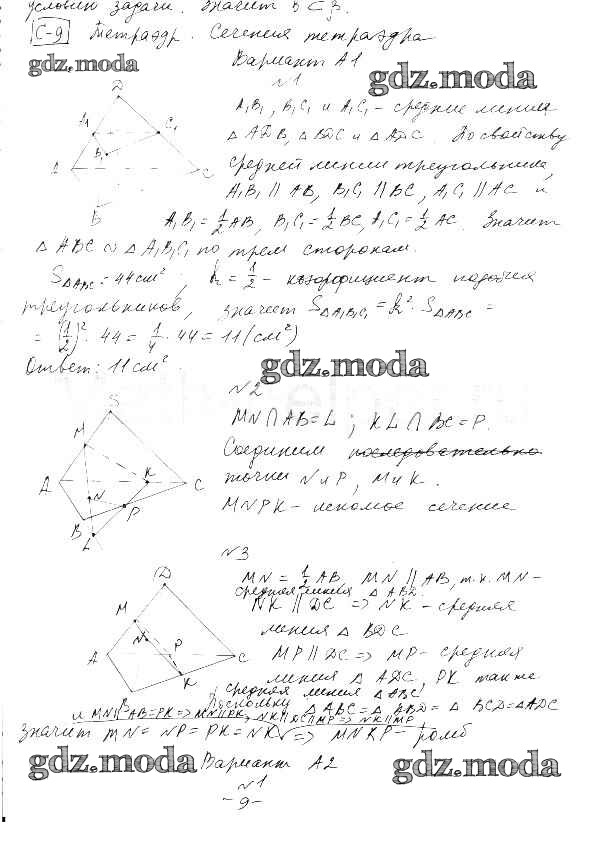 условию задачи. Значит
С-9 Тетраэдр. Сечения тетраэдра
gdz.moda
Вариант А1
gdz.moda
№1
D
A₁
C₁
B₁
A
C
B
A₁B₁, B₁C₁ и A₁C₁ - средние линии
△ADB, △BDC и △ADC. По свойству
средней линии треугольника,
A₁B₁ ∥ AB, B₁C₁ ∥ BC, A₁C₁ ∥ AC и
A₁B₁ = 1/2 AB, B₁C₁ = 1/2 BC, A₁C₁ = 1/2 AC. Значит
△ABC ∾ △A₁B₁C₁ по трем сторонам.
S△ABC = 44 см², k = 1/2 - коэффициент подобия
треугольников, значит S△A₁B₁C₁ = k² · S△ABC =
= (1/2)² · 44 = 1/4 · 44 = 11 (см²)
Ответ: 11 см².
gdz.moda
№2
S
M
A
K
C
N
P
B
L
MN ∩ AB = L ; KL ∩ BC = P.
Соединим последовательно
точки N и P, M и K.
MNPK - искомое сечение
№3
D
M
N
P
A
C
K
B
MN = 1/2 AB, MN ∥ AB, т.к. MN -
средняя линия △ABD.
NK ∥ DC => NK - средняя
линия △BDC
MP ∥ DC => MP - средняя
линия △ADC, PK также
средняя линия △ABC
Поскольку △ABC = △ABD = △BCD = △ADC
и MN ∥ AB = PK => MN ∥ PK, NK ∥ DC ∥ MP => NK ∥ MP
Значит MN = NP = PK = NK => MNKP - ромб
gdz.moda
Вариант А2
gdz.moda
№1
- 9 -